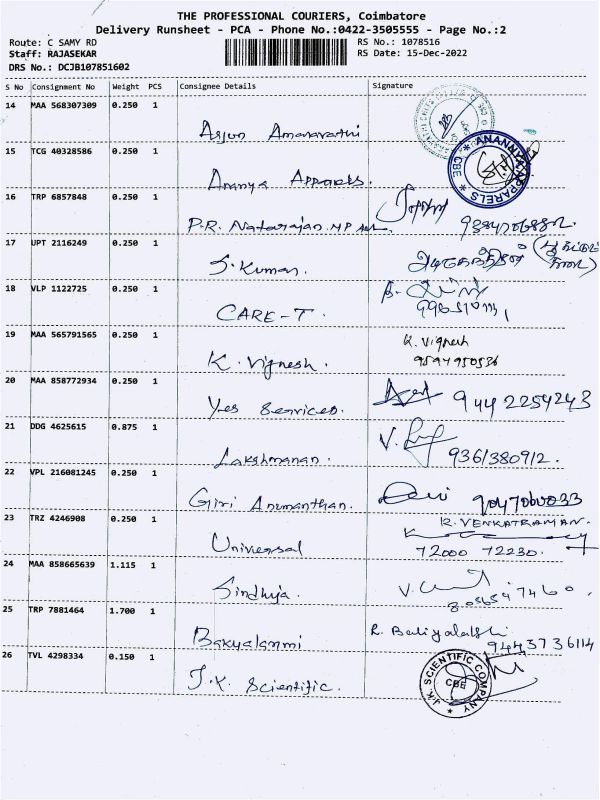 THE PROFESSIONAL COURIERS, Coimbatore
Delivery Runsheet - PCA - Phone No.:0422-3505555 - Page No.:2
Route: C SAMY RD
RS No.: 1078516
Staff: RAJASEKAR
RS Date: 15-Dec-2022
DRS No.: DCJB107851602
S No Consignment No Weight PCS Consignee Details Signature
14 MAA 568307309 0.250 1
Arjun Amaravathi
15 TCG 40328586 0.250 1
Ananya Apparels.
ANANNYA APPARELS
CBE
16 TRP 6857848 0.250 1
P.R. Natarajan MP
17 UPT 2116249 0.250 1
S. Kumar.
18 VLP 1122725 0.250 1
CARE-T.
19 MAA 565791565 0.250 1
K. Vignesh.
K. Vignesh
20 MAA 858772934 0.250 1
Yes Services.
9442254243
21 DDG 4625615 0.875 1
Lakshmanan.
9361380912.
22 VPL 216081245 0.250 1
Giri Anumanthan.
23 TRZ 4246908 0.250 1
Universal
K. VENKATRAMAN.
72000 72230.
24 MAA 858665639 1.115 1
Sindhuja.
25 TRP 7881464 1.700 1
Bakyalanmi
9443736114
26 TVL 4298334 0.150 1
J.K. Scientific.
J.K. SCIENTIFIC COMPANY
CBE